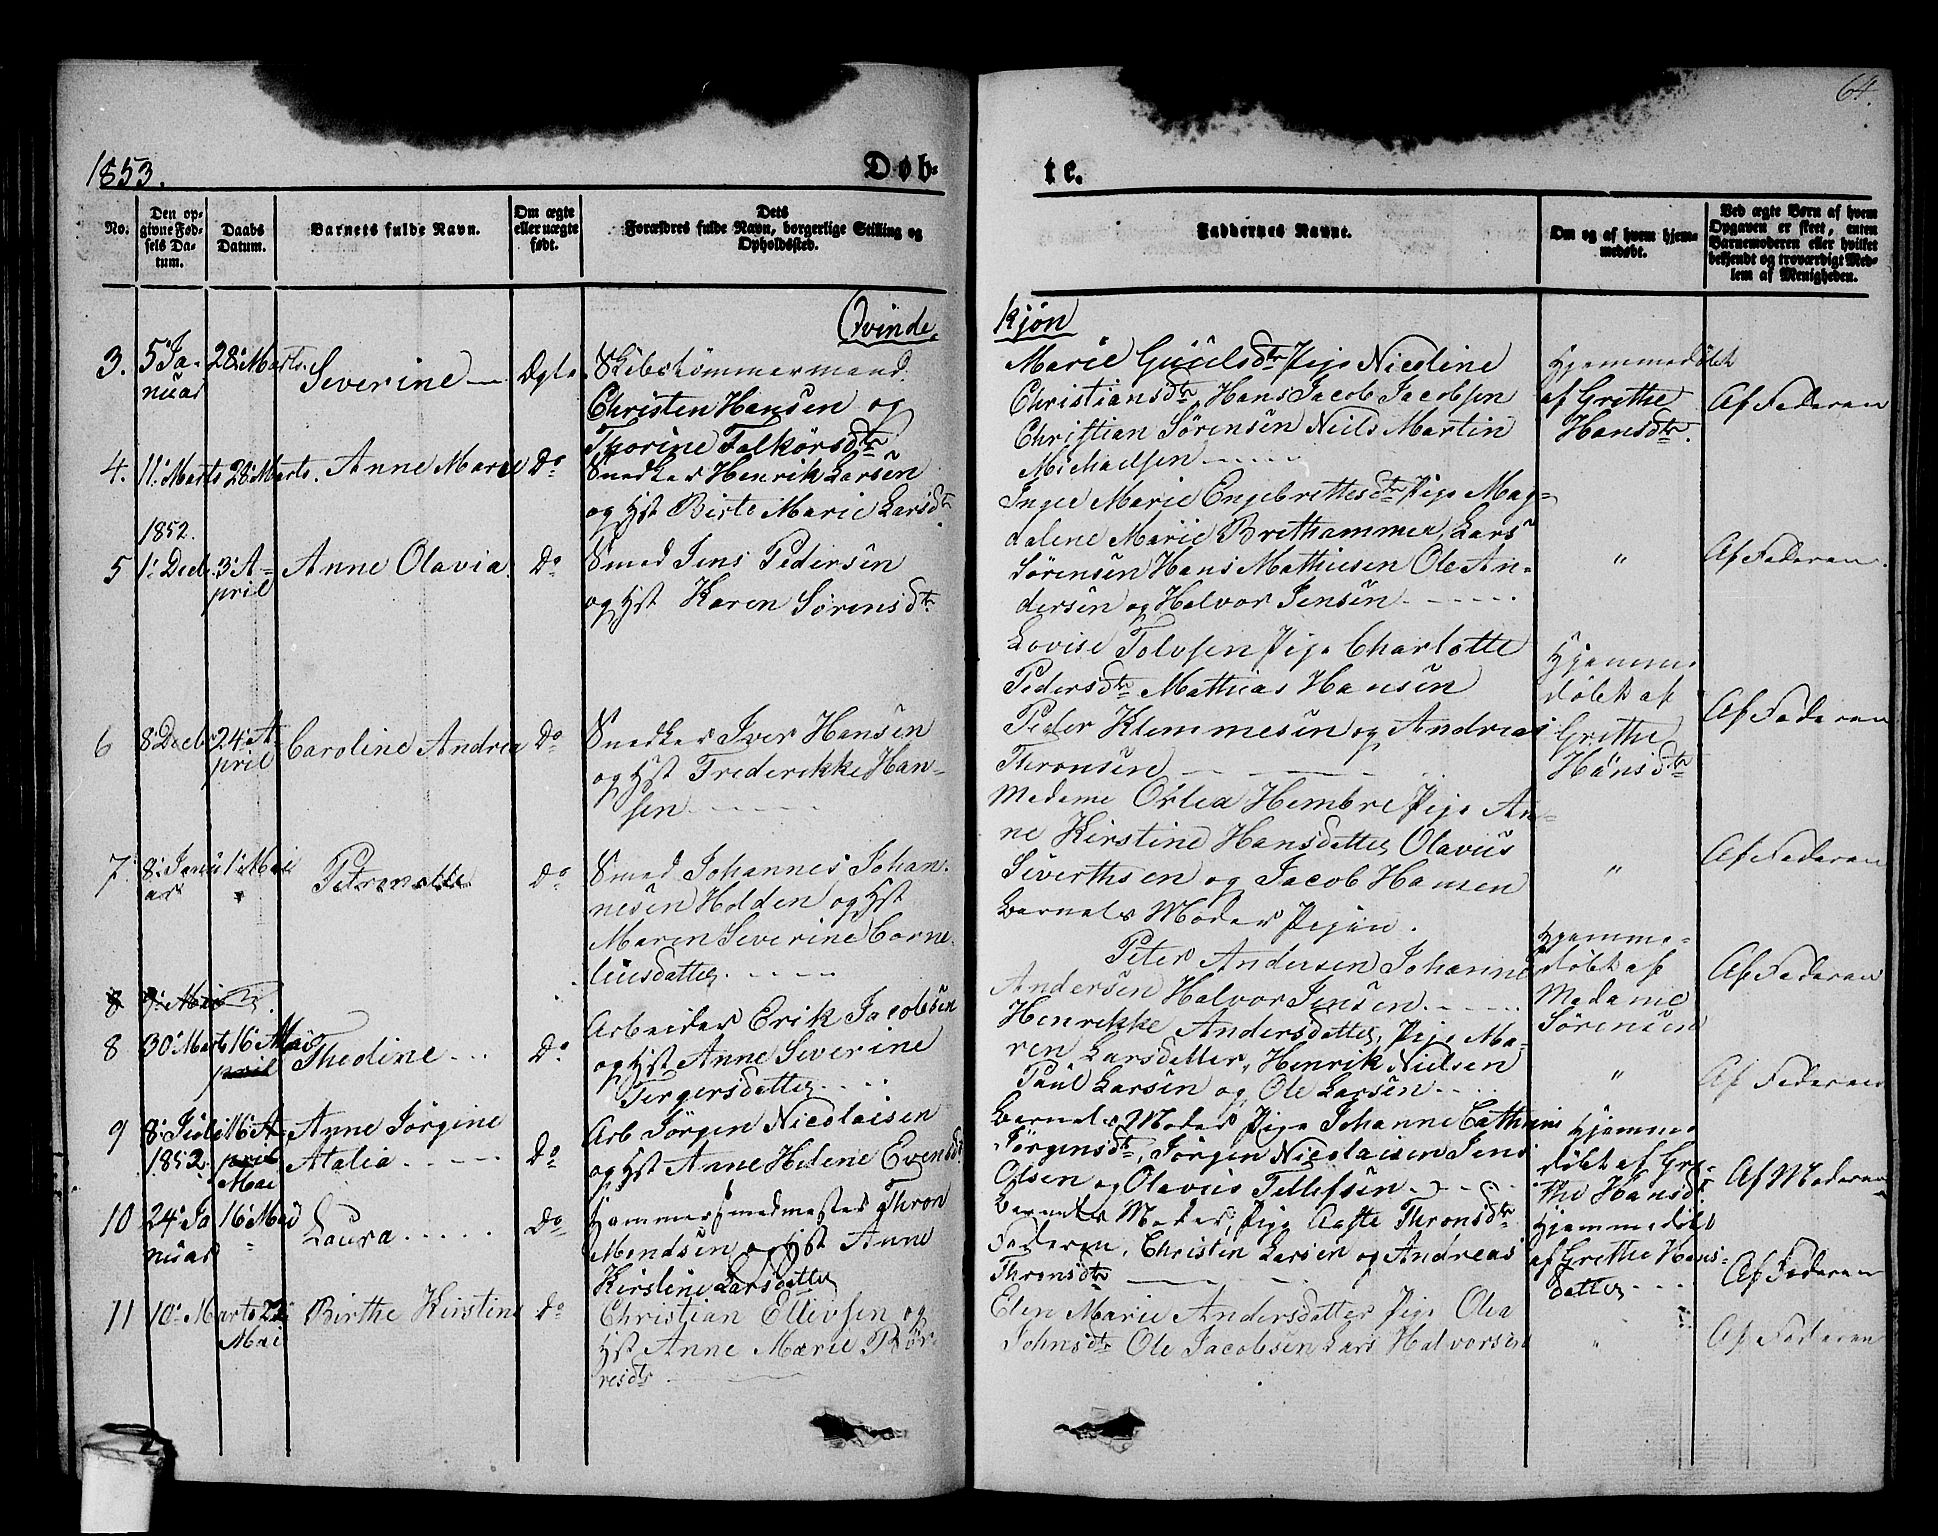 64.
1853.
Døb-
te.
No.
Den op-
givne Fød-
sels Da-
tum.
Daabs
Datum.
Barnets fulde Navn.
Om ægte
eller uægte
født.
Dets
Forældres fulde Navn, borgerlige Stilling og
Opholdssted.
Faddernes Navne.
Om og af hvem hjem-
medøbt.
Ved ægte Børn af hvem
Opgaven er skeet, enten
Barnemoderen eller hvilket
bekjendt og troværdigt Med-
lem af Menigheden.
Qvinde
Kjön
3.
5' Ja-
nuar
28' Marts.
Severine
Ægte.
Skibstömmermand
Christen Hansen og
Thorine Falkörsdtr
Marie Guulsdtr Pige Nicoline
Christiansdtr, Hans Jacob Jacobsen
Christian Sörensen Niels Martin
Michaelsen
Hjemmedöbt
af Grethe
Hansdtr.
Af Faderen
4.
11' Marts
28' Marts.
Anne Marie
Do
Snedker Henrik Larsen
og Hst Birte Marie Larsdtr
Inger Marie Engebrettesdtr Pige Mag-
dalene Marie Brethammer, Lars
Sörensen Hans Mathiesen Ole An-
dersen og Halvor Jensen
"
Af Faderen.
1852.
5
1' Decbr
3' A-
pril
Anne Olavia
Do
Smed Jens Pedersen
og Hst Karen Sörensdtr
Lovise Tolvsen Pige Charlotte
Pedersdtr Mathias Hansen
Peder Klemmesen og Andreas
Thronsen
Hjemme
döbt af
Grethe
Hansdtr
Af Faderen
6
8' Decbr
24' A-
pril
Caroline Andrea
Do
Snedker Iver Hansen
og Hst Frederikke Han-
sen
Madame Oslea Hembre Pige An-
ne Kirstine Hansdatter Olavus
Siverthsen og Jacob Hansen
"
Af Faderen
7.
8' Janu
ar
1' Mai
Petronelle
Do
Smed Johannes Johan-
nesen Holden og Hst
Maren Severine Corne-
liusdatter
Barnets Moder Pigen.
Peter Andersen Johanne
Andersen Halvor Jensen
Hjemme-
döbt af
Madame
Sörensen
Af Faderen
8
9' Mai
8
30' Marts
16' Mai
pril
Thedine
Do
Arbeider Erik Jacobsen
og Hst Anne Severine
Tergersdatter
Henrikke Andersdatter, Pige Ma-
ren Larsdatter, Henrik Nielsen
Paul Larsen og Ole Larsen
"
Af Faderen
9
8' Juli
1852
16' A-
pril
Mai
Anne Jörgine
Atalia
Do
Arb Jörgen Nicolaisen
og Hst Anne Helene Evensdtr
Barnets Moder Pige Johanne Cathrine
Jörgensdtr, Jörgen Nicolaisen Jens
Olsen og Olavus Tellefsen
Hjemme
döbt af Gre-
the Hansdtr
Af Moderen
10
24' Ja
nuar
16' Mai
"
Laura
Do
Hammersmedmester Thron
Mendsen og Hst Anne
Kirstine Larsdatter
Barnets Moder, Pige Aaste Thronsdtr
Faderen, Christen Larsen og Andreas
Thronsdtr
Hjemmedöbt
af Grethe Hans-
datter
Af Faderen
11
10' Marts
22'
Mai
Birthe Kirstine
Do
Christian Ellevsen og
Hst Anne Marie Thor-
resdtr
Elen Marie Andersdatter Pige Olea
Johnsdtr Ole Jacobsen Lars Halvorsen
"
Af Faderen